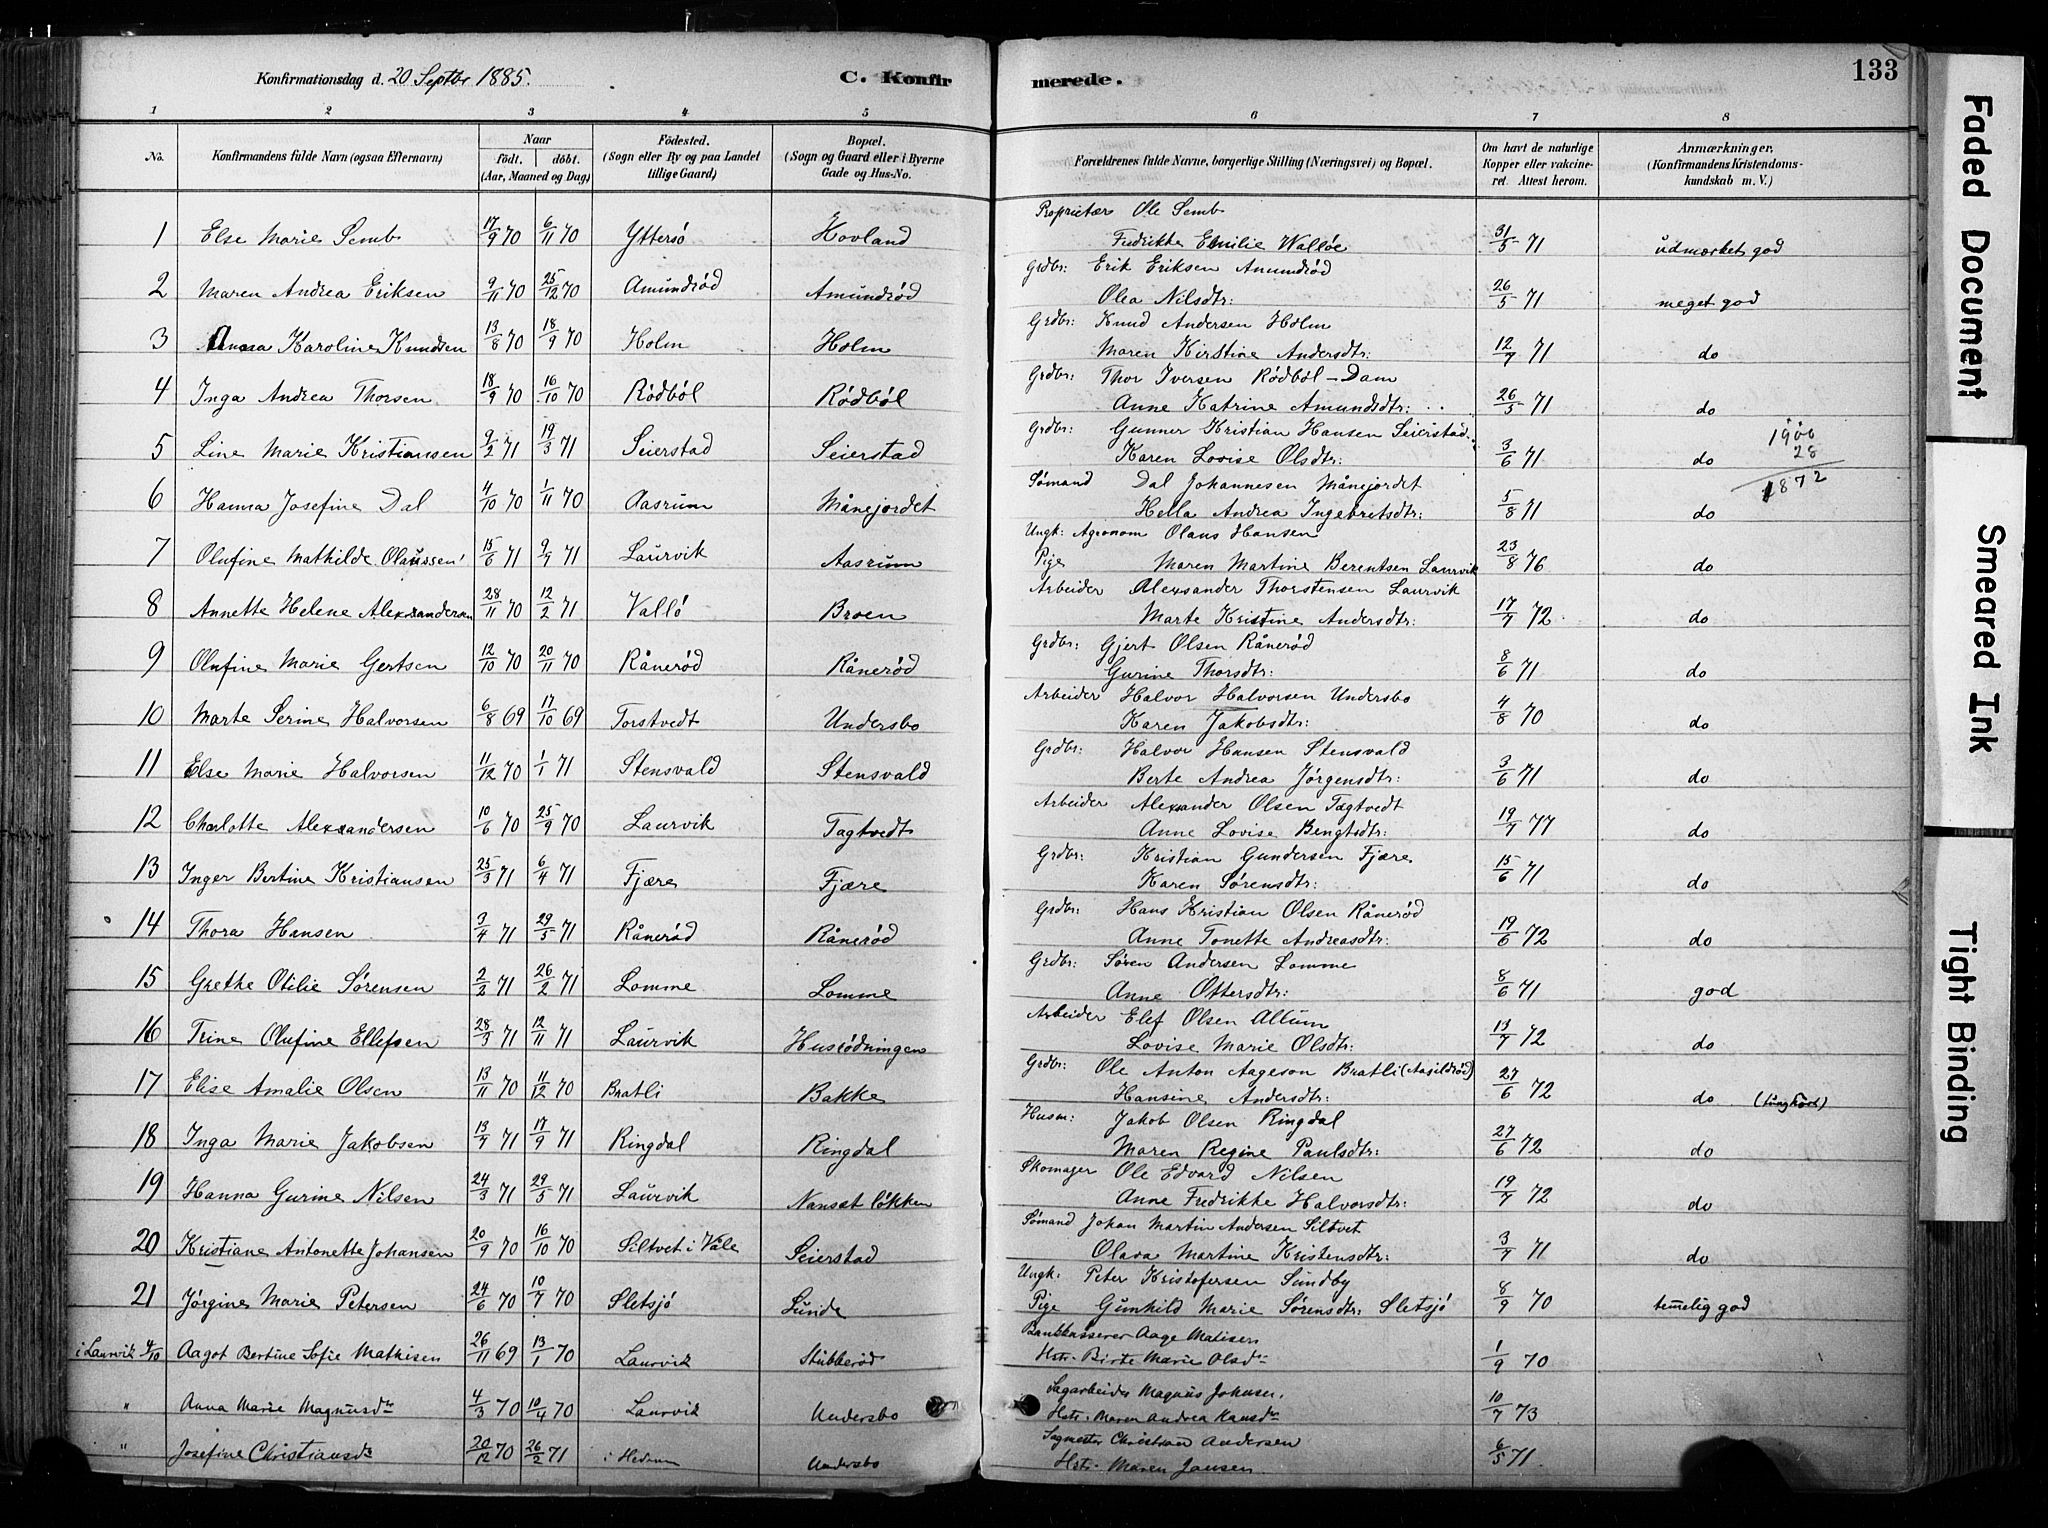 Konfirmationsdag d. 20 Septbr 1885. C. Konfirmerede. 133
1 2 3 4 5 6 7 8
No. Konfirmandens fulde Navn (ogsaa Efternavn) Naar födt. döbt. (Aar, Maaned og Dag) Födested. (Sogn eller By og paa Landet tillige Gaard) Bopæl. (Sogn og Gaard eller i Byerne Gade og Hus-No. Forældrenes fulde Navne, borgerlige Stilling (Næringsvei) og Bopæl. Om havt de naturlige Kopper eller vakcineret. Attest herom. Anmærkninger. (Konfirmandens Kristendomskundskab m. V.)
Proprietær Ole Semb
1 Else Marie Semb 17/9 70 6/11 70 Yttersö Hovland Fredrikke Emilie Walløe 31/5 71 udmærket god
Grdbr: Erik Eriksen Amundröd
2 Maren Andrea Eriksen 9/11 70 25/12 70 Amundröd Amundröd Olea Nilsdtr: 26/5 71 meget god
Grdbr: Knud Andersen Holm
3 Anna Karoline Knudsen 13/8 70 18/9 70 Holm Holm Maren Kirstine Andersdtr: 12/7 71 do
Grdbr: Thor Iversen Rödböl - Dam
4 Inga Andrea Thorsen 18/9 70 16/10 70 Rödböl Rödböl Anne Katrine Amundsdtr: 26/5 71 do
Grdbr: Gunner Kristian Hansen Seierstad
5 Line Marie Kristiansen 9/2 71 19/3 71 Seierstad Seierstad Karen Lovise Olsdtr: 3/6 71 do
1900
28
1872
Sømand Dal Johannesen Månejordet
6 Hanna Josefine Dal 4/10 70 1/11 70 Aasrum Månejordet Hella Andrea Ingebritsdtr: 5/8 71 do
Ungk: Agronom Olaus Hansen
7 Olufine Mathilde Olaussen 15/6 71 9/9 71 Laurvik Aasrum Pige Maren Martine Berentsen Laurvik 23/8 76 do
Arbeider Alexsander Thorstensen Laurvik
8 Annette Helene Alexsandersen 28/11 70 12/2 71 Vallö Broen Marte Kristine Andersdtr: 17/7 72 do
Grdbr: Gjert Olsen Rånerød
9 Olufine Marie Gertsen 12/10 70 20/11 70 Rånerød Rånerød Gurine Thorsdtr: 8/6 71 do
Arbeider Halvor Halvorsen Undersbo
10 Marte Serine Halvorsen 6/8 69 17/10 69 Torstvedt Undersbo Karen Jakobsdtr: 4/8 70 do
Grdbr: Halvor Hansen Stensvald
11 Else Marie Halvorsen 11/12 70 1/1 71 Stensvald Stensvald Berte Andrea Jörgensdtr: 3/6 71 do
Arbeider Alexsander Olsen Tagtvedt
12 Charlotte Alexsandersen 10/6 70 25/9 70 Laurvik Tagtvedt Anne Lovise Bengtsdtr: 19/7 77 do
Grdbr: Kristian Gundersen Fjære
13 Inger Bertine Kristiansen 25/3 71 6/4 71 Fjære Fjære Karen Sørensdtr: 15/6 71 do
Grdbr: Hans Kristian Olsen Rånerød
14 Thora Hansen 3/4 71 29/5 71 Rånerød Rånerød Anne Tonette Andreasdtr: 19/6 72 do
Grdbr: Søren Andersen Lomme
15 Grethe Otilie Sørensen 2/2 71 26/2 71 Lomme Lomme Anne Ottersdtr: 8/6 71 god
Arbeider Elef Olsen Allum
16 Trine Olufine Ellefsen 28/3 71 12/11 71 Laurvik Husrødningen Lovise Marie Olsdtr: 13/7 72 do
Grdbr: Ole Anton Aageson Bratli (Aasildröd)
17 Elise Amalie Olsen 13/11 70 11/12 70 Bratli Bakke Hansine Andersdtr: 27/6 72 do
Husm: Jakob Olsen Ringdal
18 Inga Marie Jakobsen 13/7 71 17/9 71 Ringdal Ringdal Maren Regine Paulsdtr: 27/6 72 do
Skomager Ole Edvard Nilsen
19 Hanna Gurine Nilsen 24/3 71 29/5 71 Laurvik Nanset lökken Anne Fredrikke Halvorsdtr: 19/7 72 do
Sømand Johan Martin Andersen Siltvet
20 Kristiane Antonette Johansen 20/9 70 16/10 70 Siltvet i Våle Seierstad Olava Martine Kristensdtr: 3/7 71 do
Ungk: Peter Kristofersen Sundby
21 Jørgine Marie Petersen 24/6 70 10/7 70 Sletsjö Lunde Pige Gunhild Marie Sørensdtr: Sletsjö 8/9 70 temelig god
Bankkasserer Aage Matisen
i Laurvik 4/10 Aagot Bertine Sofie Mathisen 26/11 69 13/1 70 Laurvik Stubberød Hstr. Birte Marie Olsdr 1/9 70
Sagarbeider Magnus Johnsen.
" Anna Marie Magnusdr 4/3 70 10/4 70 Laurvik Undersbo Hstr. Maren Andrea Hansdr 10/7 73
Sagmester Christian Andersen
" Josefine Christiansdr 20/12 70 26/2 71 i Hedrum Undersbo Hstr. Maren Jansen 6/5 71.
Faded Document
Smeared Ink
Tight Binding